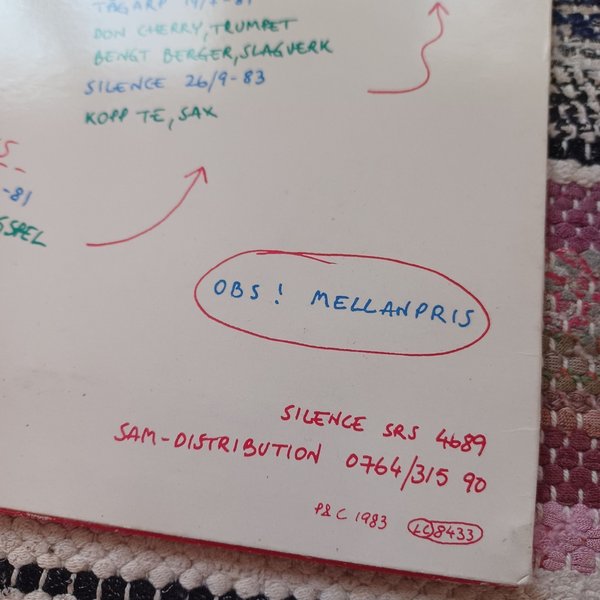 TÅGARP 19/2-81
DON CHERRY, TRUMPET
BENGT BERGER, SLAGVERK
SILENCE 26/9-83
KOPP TE, SAX
-81
OBS! MELLANPRIS
SILENCE SRS 4689
SAM-DISTRIBUTION 0764/315 90
P&C 1983 LC 8433